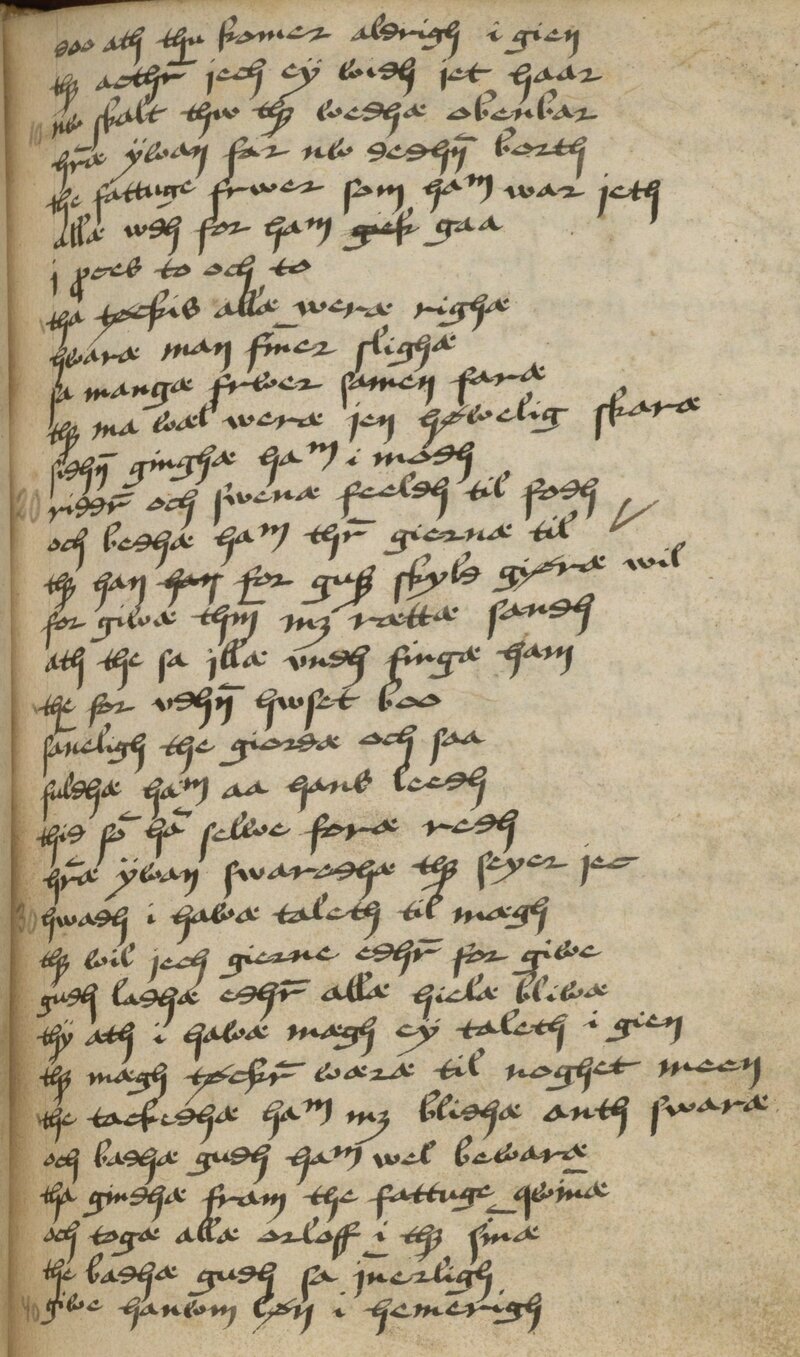 soo ath thu komer aldrigh i gien
thz acthr̄ jech ey widh jet haar
10 nw skalt thw thz wedhæ obenbar
hr̄æ ywan far nw dedhn̄ borth
the fattuge frwer som ham war jeth
allæ wdh for ham giek gaa
j proes to och to
tha tøckis allæ weræ righæ
hwaræ man fin̄er slighæ
sa mangæ frwer samen faræ
thz ma wæl weræ jen høwelig skaræ
sidhn̄ ginghæ ham i modh
20 riddr̄ och swenæ feeldh til fodh
och bedhæ ham thr̄ giernæ til
thz han han for gudz skyld giøræ wil
for giwæ thm̄ mz rættæ sandh
ath the sa jllæ vndh fingæ ham
the for vdhn̄ hwset boo
san̄eligh the giordæ och saa
fuldhæ ham aa hans leedh
thid so̅ ha̅ selwe foræ redh
hr̄æ ywan swaredhæ thz seyer jec
30 hwadh i hawæ taleth til mægh
thz wil jech gierne edhr̄ for giwe
gudh ladhæ edhr̄ allæ hielæ bliwæ
thy ath i hawæ mægh ey taleth i gien
thz mægh tøckr̄ wæræ til noghet meen
the tackedhæ ham mz blidhæ anth swaræ
och badhæ gudh ham wel bewaræ
tha gindhæ fram the fattuge qwin̄æ
och togæ allæ orloff i thz sin̄æ
the badhæ gudh sa jn̄erligh
40 giwe hanwm løn i hemerigh